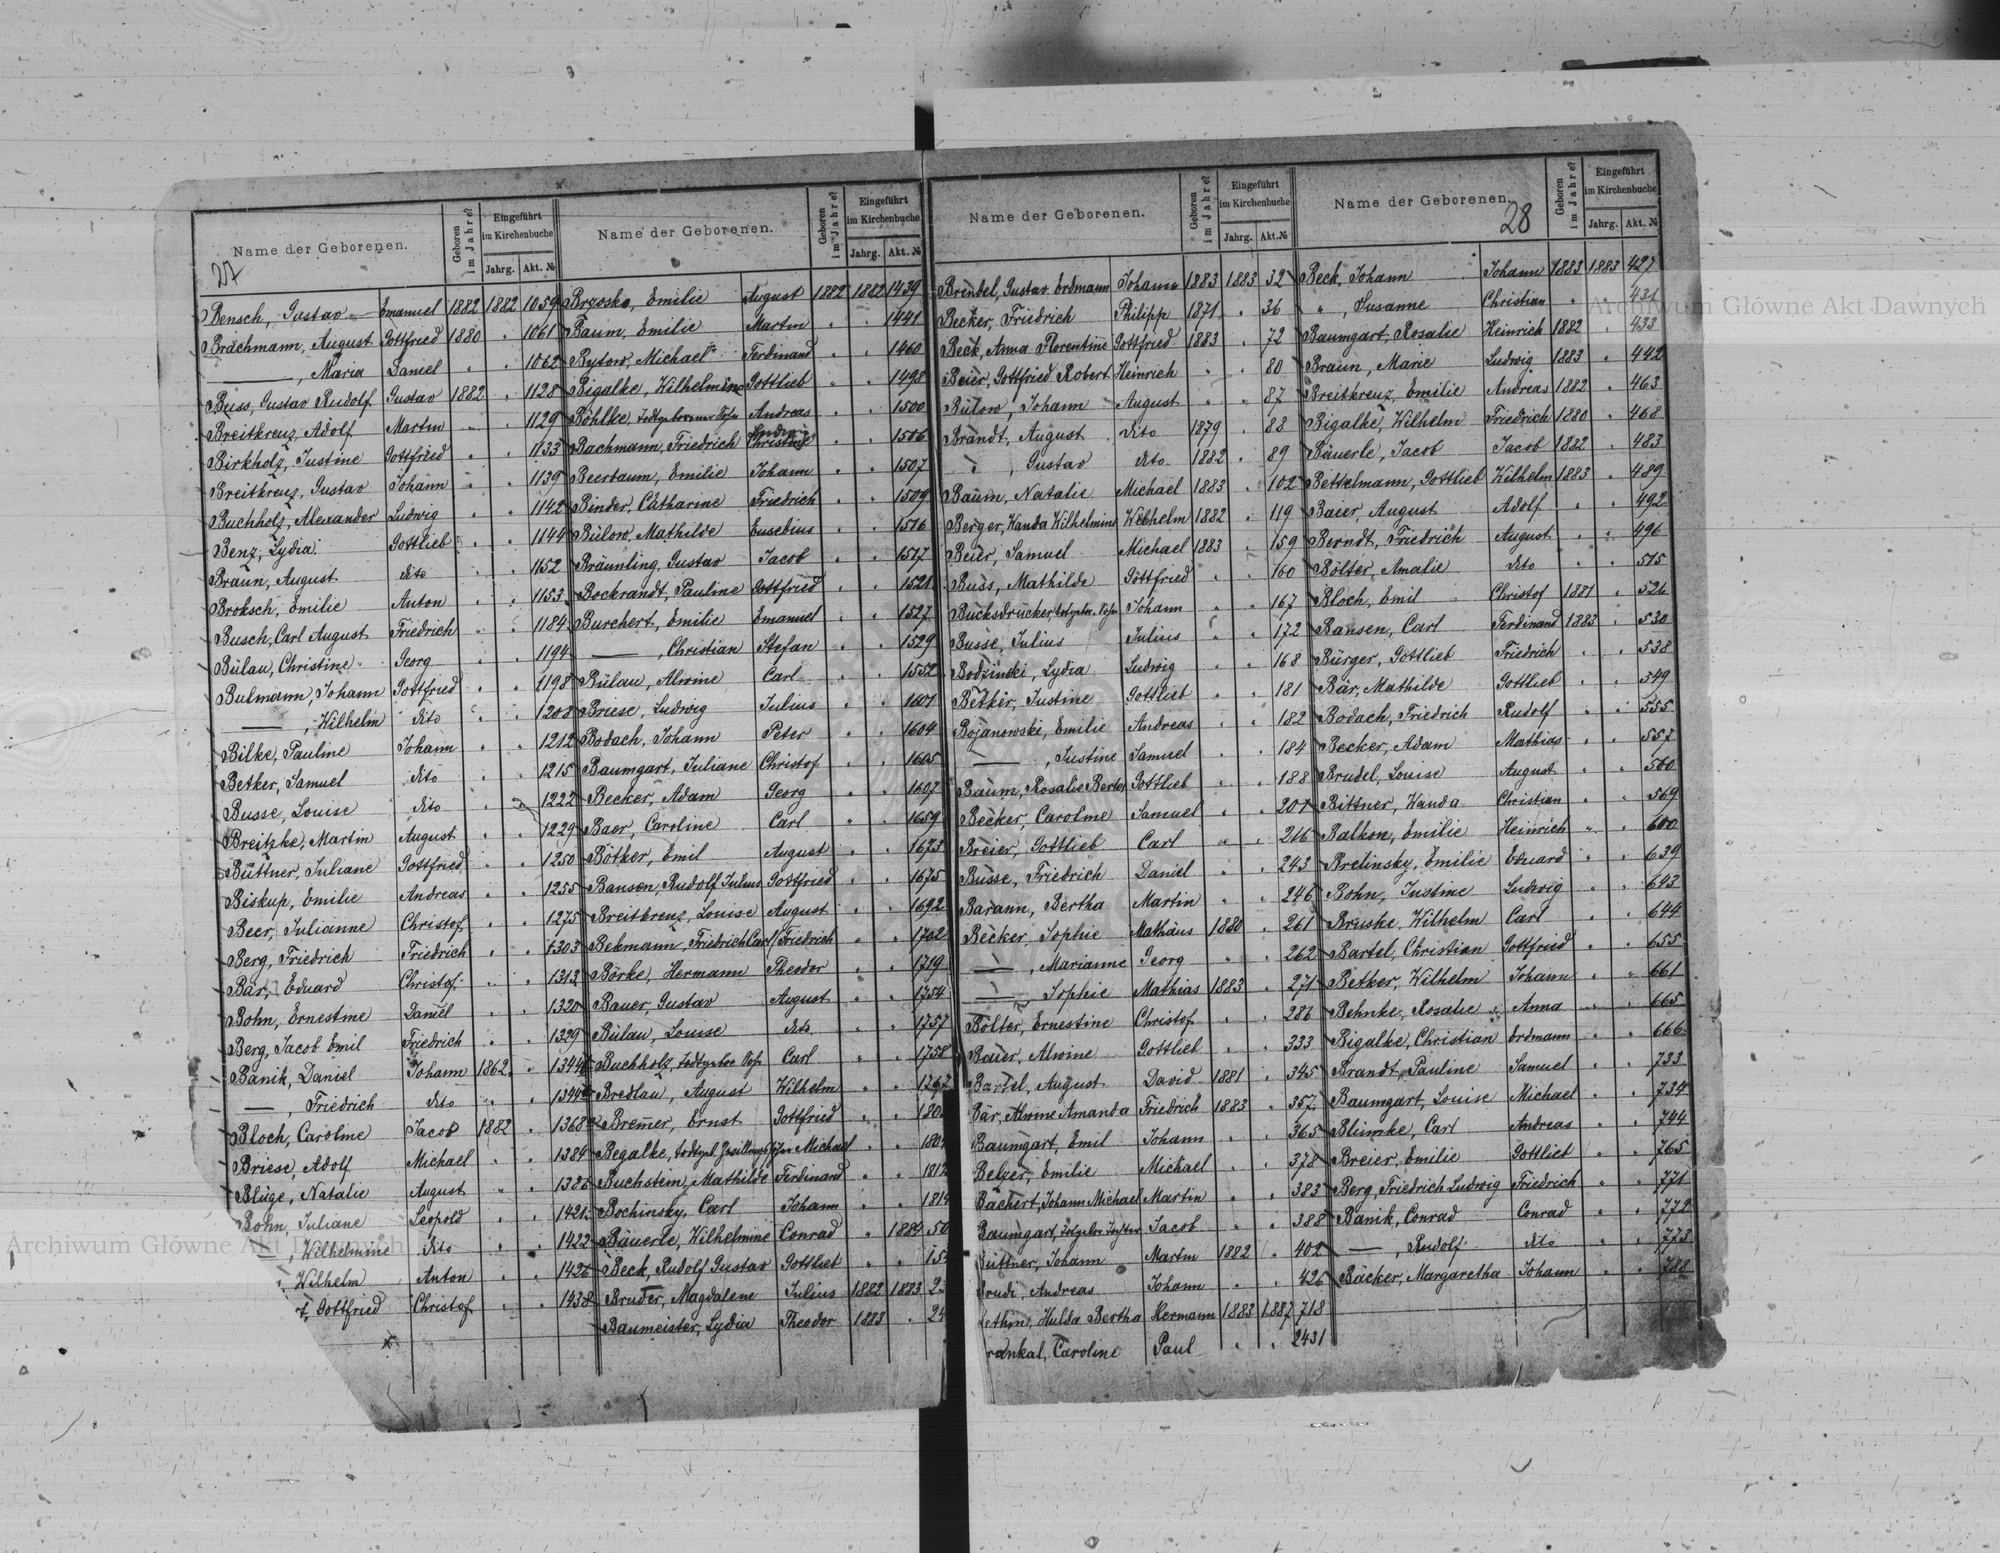 Archiwum Główne Akt Dawnych
27
Name der Geborenen. Geboren im Jahre? Eingeführt im Kirchenbuche Jahrg. Akt. №
Bensch, Gustav — Emanuel 1882 1882 1059
Brächmann, August Gottfried 1880 " 1061
———, Maria Daniel " " 1062
Buss, Gustav Rudolf Gustav 1882 " 1128
Breitkreuz, Adolf Martin " " 1129
Birkholz, Justine Gottfried " " 1133
Breitkreuz, Gustav Johann " " 1139
Buchholz, Alexander Ludwig " " 1142
Benz, Lydia Gottlieb " " 1144
Braun, August dito " " 1152
Broksch, Emilie Anton " " 1153
Busch, Carl August Friedrich " " 1184
Bülau, Christine Georg " " 1194
Bulmann, Johann Gottfried " " 1198
———, Wilhelm dito " " 1208
Bilke, Pauline Johann " " 1212
Betker, Samuel dito " " 1215
Busse, Louise dito " " 1222
Breitzke, Martin August " " 1229
Büttner, Juliane Gottfried " " 1250
Biskup, Emilie Andreas " " 1255
Beer, Julianne Christof " " 1275
Berg, Friedrich Friedrich " " 1303
Bär, Eduard Christof " " 1313
Bohn, Ernestine Daniel " " 1320
Berg, Jacob Emil Friedrich " " 1329
Banik, Daniel Johann 1862 " 1344
———, Friedrich dito " "
Bloch, Caroline Jacob 1882 " 1368
Briese, Adolf Michael " " 1384
Blüge, Natalie August " " 1386
Bohn, Juliane Leopold " " 1421
—, Wilhelmine dito " " 1422
Wilhelm Anton " " 1426
Gottfried Christof " " 1438
Name der Geborenen. Geboren im Jahre? Eingeführt im Kirchenbuche Jahrg. Akt. №
Brzoska, Emilie August 1882 1882 1439
Baum, Emilie Martin " " 1441
Bytow, Michael Ferdinand " " 1460
Bigalke, Wilhelmine Gottlieb " " 1498
Böhlke, todtgeborener Sohn Andreas " " 1500
Bachmann, Friedrich Christine " " 1506
Beerbaum, Emilie Johann " " 1507
Binder, Catharine Friedrich " " 1509
Bülow, Mathilde Eusebius " " 1516
Bräunling, Gustav Jacob " " 1517
Bockrandt, Pauline Gottfried " " 1521
Burchert, Emilie Emanuel " " 1527
———, Christian Stefan " " 1529
Bülau, Alwine Carl " " 1552
Briese, Ludwig Julius " " 1601
Bodach, Johann Peter " " 1604
Baumgart, Juliane Christof " " 1605
Becker, Adam Georg " " 1607
Baer, Caroline Carl " " 1659
Bötker, Emil August " " 1673
Bansen, Rudolf Julius Gottfried " " 1675
Breitkreuz, Louise August " " 1692
Bekmann, Friedrich Carl Friedrich " " 1702
Börke, Hermann Theodor " " 1719
Bauer, Gustav August " " 1754
Bülau, Louise dito " " 1757
Buchholz, Carl " " 1758
Bredlau, August Wilhelm " " 1767
Bremer, Ernst Gottfried " "
Begalke, Michael " "
Buchstein, Mathilde Ferdinand " " 1812
Bochinsky, Carl Johann " " 1814
Bäuerle, Wilhelmine Conrad " 1884 50
Beck, Rudolf Gustav Gottlieb " "
Bruder, Magdalene Julius 1882 1883
Baumeister, Lydia Theodor 1883 "
Name der Geborenen. Geboren im Jahre? Eingeführt im Kirchenbuche Jahrg. Akt. №
Brendel, Gustav Erdmann Johann 1883 1883 32
Becker, Friedrich Philipp 1871 " 36
Beck, Anna Florentine Gottfried 1883 " 72
Beier, Gottfried Robert Heinrich " " 80
Bülow, Johann August " " 87
Brandt, August dito 1879 " 88
" , Gustav dito 1882 " 89
Baum, Natalie Michael 1883 " 102
Berger, Wanda Wilhelmine Wilhelm 1882 " 119
Beier, Samuel Michael 1883 " 159
Buss, Mathilde Gottfried " " 160
Bucksdrücker, Johann " " 167
Busse, Julius Julius " " 172
Bodzinski, Lydia Ludwig " " 168
Betker, Justine Gottlieb " " 181
Bojanowski, Emilie Andreas " " 182
———, Justine Samuel " " 184
Baum, Rosalie Berta Gottlieb " " 188
Becker, Caroline Samuel " " 201
Breier, Gottlieb Carl " " 216
Busse, Friedrich Daniel " " 243
Barann, Bertha Martin " " 246
Becker, Sophie Mathäus 1880 " 261
———, Marianne Georg " " 262
———, Sophie Mathias 1883 " 271
Bölter, Ernestine Christof " " 286
Bauer, Alwine Gottlieb " " 333
Bartel, August David 1881 " 345
Bär, Alwine Amanda Friedrich 1883 " 357
Baumgart, Emil Johann " " 365
Belger, Emilie Michael " " 378
Bächert, Johann Michael Martin " " 383
Baumgart, Jacob " " 388
Büttner, Johann Martin 1882 " 402
Brudi, Andreas Johann " " 426
Hulda Bertha Hermann 1883 1887 718
Caroline Paul " " 2431
28
Name der Geborenen. Geboren im Jahre? Eingeführt im Kirchenbuche Jahrg. Akt. №
Beck, Johann Johann 1883 1883 427
" , Susanne Christian " " 431
Baumgart, Rosalie Heinrich 1882 " 433
Braun, Marie Ludwig 1883 " 442
Breitkreuz, Emilie Andreas 1882 " 463
Bigalke, Wilhelm Friedrich 1880 " 468
Bäuerle, Jacob Jacob 1882 " 483
Bettelmann, Gottlieb Wilhelm 1883 " 489
Baier, August Adolf " " 492
Berndt, Friedrich August " " 496
Bölter, Amalie dito " " 515
Bloch, Emil Christof 1881 " 526
Bansen, Carl Ferdinand 1883 " 530
Bürger, Gottlieb Friedrich " " 538
Bär, Mathilde Gottlieb " " 549
Bodach, Friedrich Rudolf " " 555
Becker, Adam Mathias " " 557
Brudel, Louise August " " 560
Bittner, Wanda Christian " " 569
Balkon, Emilie Heinrich " " 600
Brelinsky, Emilie Eduard " " 639
Bohn, Justine Ludwig " " 643
Bruske, Wilhelm Carl " " 644
Bartel, Christian Gottfried " " 655
Betker, Wilhelm Johann " " 661
Behnke, Rosalie Anna " " 665
Bigalke, Christian Erdmann " " 666
Brandt, Pauline Samuel " " 733
Baumgart, Louise Michael " " 734
Blümke, Carl Andreas " " 744
Breier, Emilie Gottlieb " " 765
Berg, Friedrich Ludwig Friedrich " " 771
Banik, Conrad Conrad " " 772
———, Rudolf dito " " 773
Bäcker, Margaretha Johann " " 788
Archiwum Główne Akt Dawnych